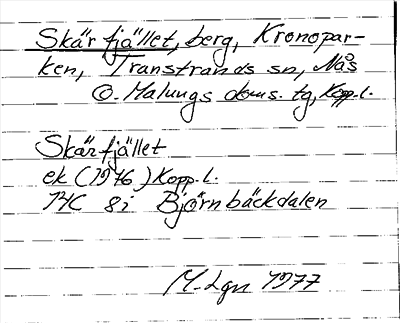 Skärfjället, berg, Kronopar-
ken, Transtrands sn, Nås
o. Malungs doms. tg, Kopp.l.
Skärfjället
ek (1976) Kopp.l.
14C 8i Björnbäckdalen
M. Lgn 1977